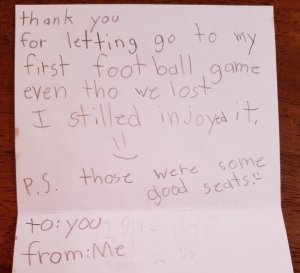 thank you
for letting go to my
first foot ball game
even tho we lost
I stilled injoyed it,
P.S. those were some
good seats!!
to: you
from: Me